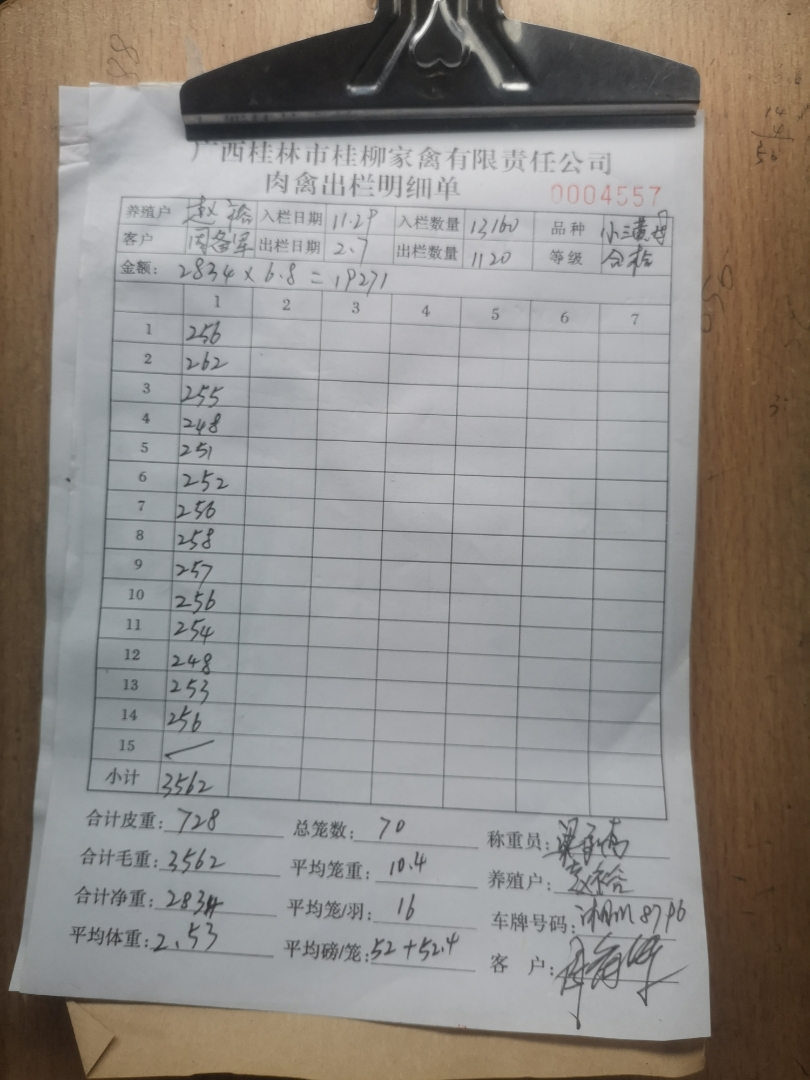 广西桂林市桂柳家禽有限责任公司
肉禽出栏明细单
0004557
养殖户 赵裕 入栏日期 11.29 入栏数量 13160 品种
客户 出栏日期 2.7 出栏数量 1120 等级 合格
金额: 2834 x 6.8 = 19271
1 2 3 4 5 6 7
1 256
2 262
3 255
4 248
5 251
6 252
7 256
8 258
9 257
10 256
11 254
12 248
13 253
14 256
15
小计 3562
合计皮重: 728 总笼数: 70 称重员:
合计毛重: 3562 平均笼重: 10.4 养殖户: 赵裕
合计净重: 2834 平均笼/羽: 16 车牌号码:
平均体重: 2.53 平均磅/笼: 52+52.4 客 户: